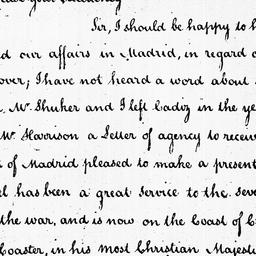 Sir, I should be happy to h
d our affairs in Madrid, in regard o
over; I have not heard a word about
Mr. Shuker and I left Cadiz in the ye
Mr Harrison a Letter of agency to receiv
of Madrid pleased to make a present
el has been a great Service to the seve
the war, and is now on the Coast of C
Coaster, in his most Christian Majest